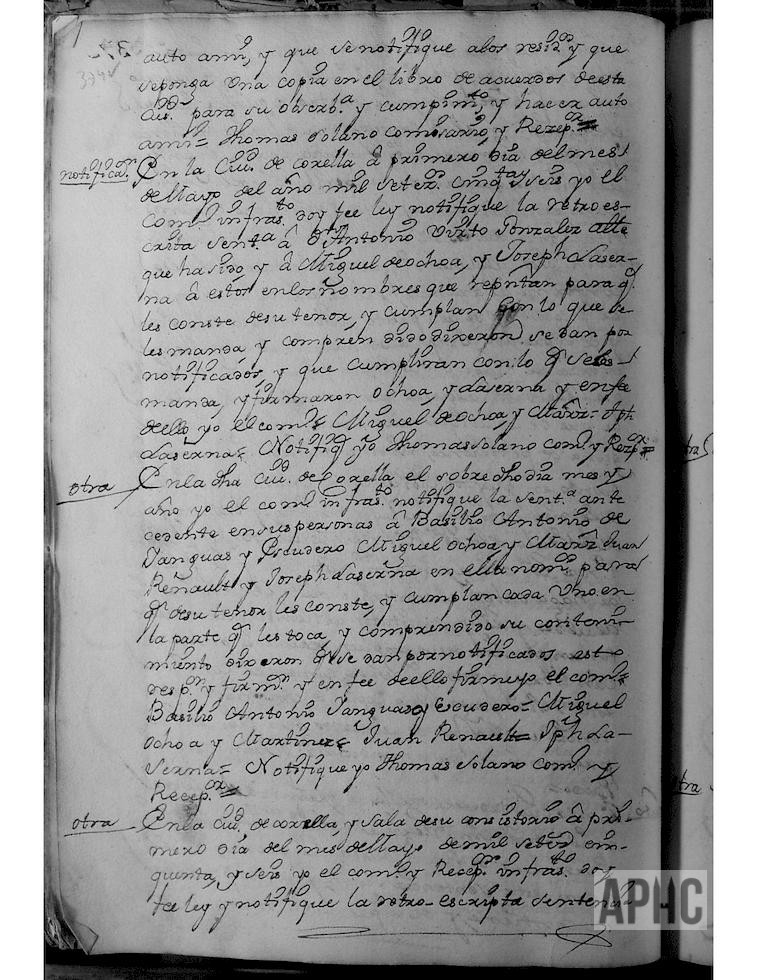 auto ami, y que se notifique alos resid.s y que
seponga Una copia en el libro de acuerdos de esta
Ciu.d para su observ.a y cumpim.to, y hacer auto
ami= Thomas Solano Comisario, y Rezep.or
notificaz.on En la Ciu.d de corella â primero dia del mes
de Mayo del año mil setez.s cinq.ta y seis yo el
Com.o infras.to doy fee ley notifique la retro es-
crita sent.a â Dn Antonio Virto Gonzalez Alle
que ha sido, y â Miguel de ochoa, y Joseph Laser-
na â estos enlos nombres que reptan para q.e
les conste desu tenor, y cumplan con lo que se
les manda, y comprendido dixeron se dan por
notificados, y que cumpliran con lo q.e seles
manda, y firmaron ochoa, y Laserna y enfee
dello yo el com.o= Miguel de Ochoa, y Martz= Jph
Laserna= Notifiq.e yo Thomas Solano Com.o y Rezep.or=
otra En la dha Ciu.d de Corella el sobre dho dia mes y
año yo el com.o infras.to notifique la sent.a ante
cedente en sus personas â Basilio Antonio de
Yanguas y Escudero Miguel Ochoa, y Martz Juan
Renault y Joseph Laserna en el nom.e para
q.e desu tenor les conste, y cumplan cada Uno en
la parte q.e les toca, y comprendido su conteni-
miento dixeron q.e se dan por notificados esto
resp.n y firm.n y en fee de ello firme yo el com.o=
Basilio Antonio Yanguas y Escudero= Miguel
Ochoa y Martinez= Juan Renault= Jph La-
Serna= Notifique yo Thomas Solano com.o y
Recep.or=
otra En la Ciu.d de corella, y Sala desu consistorio â pri-
mero dia del mes de Mayo de mil setez.s cin-
quenta, y seis yo el com.o y Recep.or infras.to doy
fee ley y notifique la retro-escripta sentencia
APHC